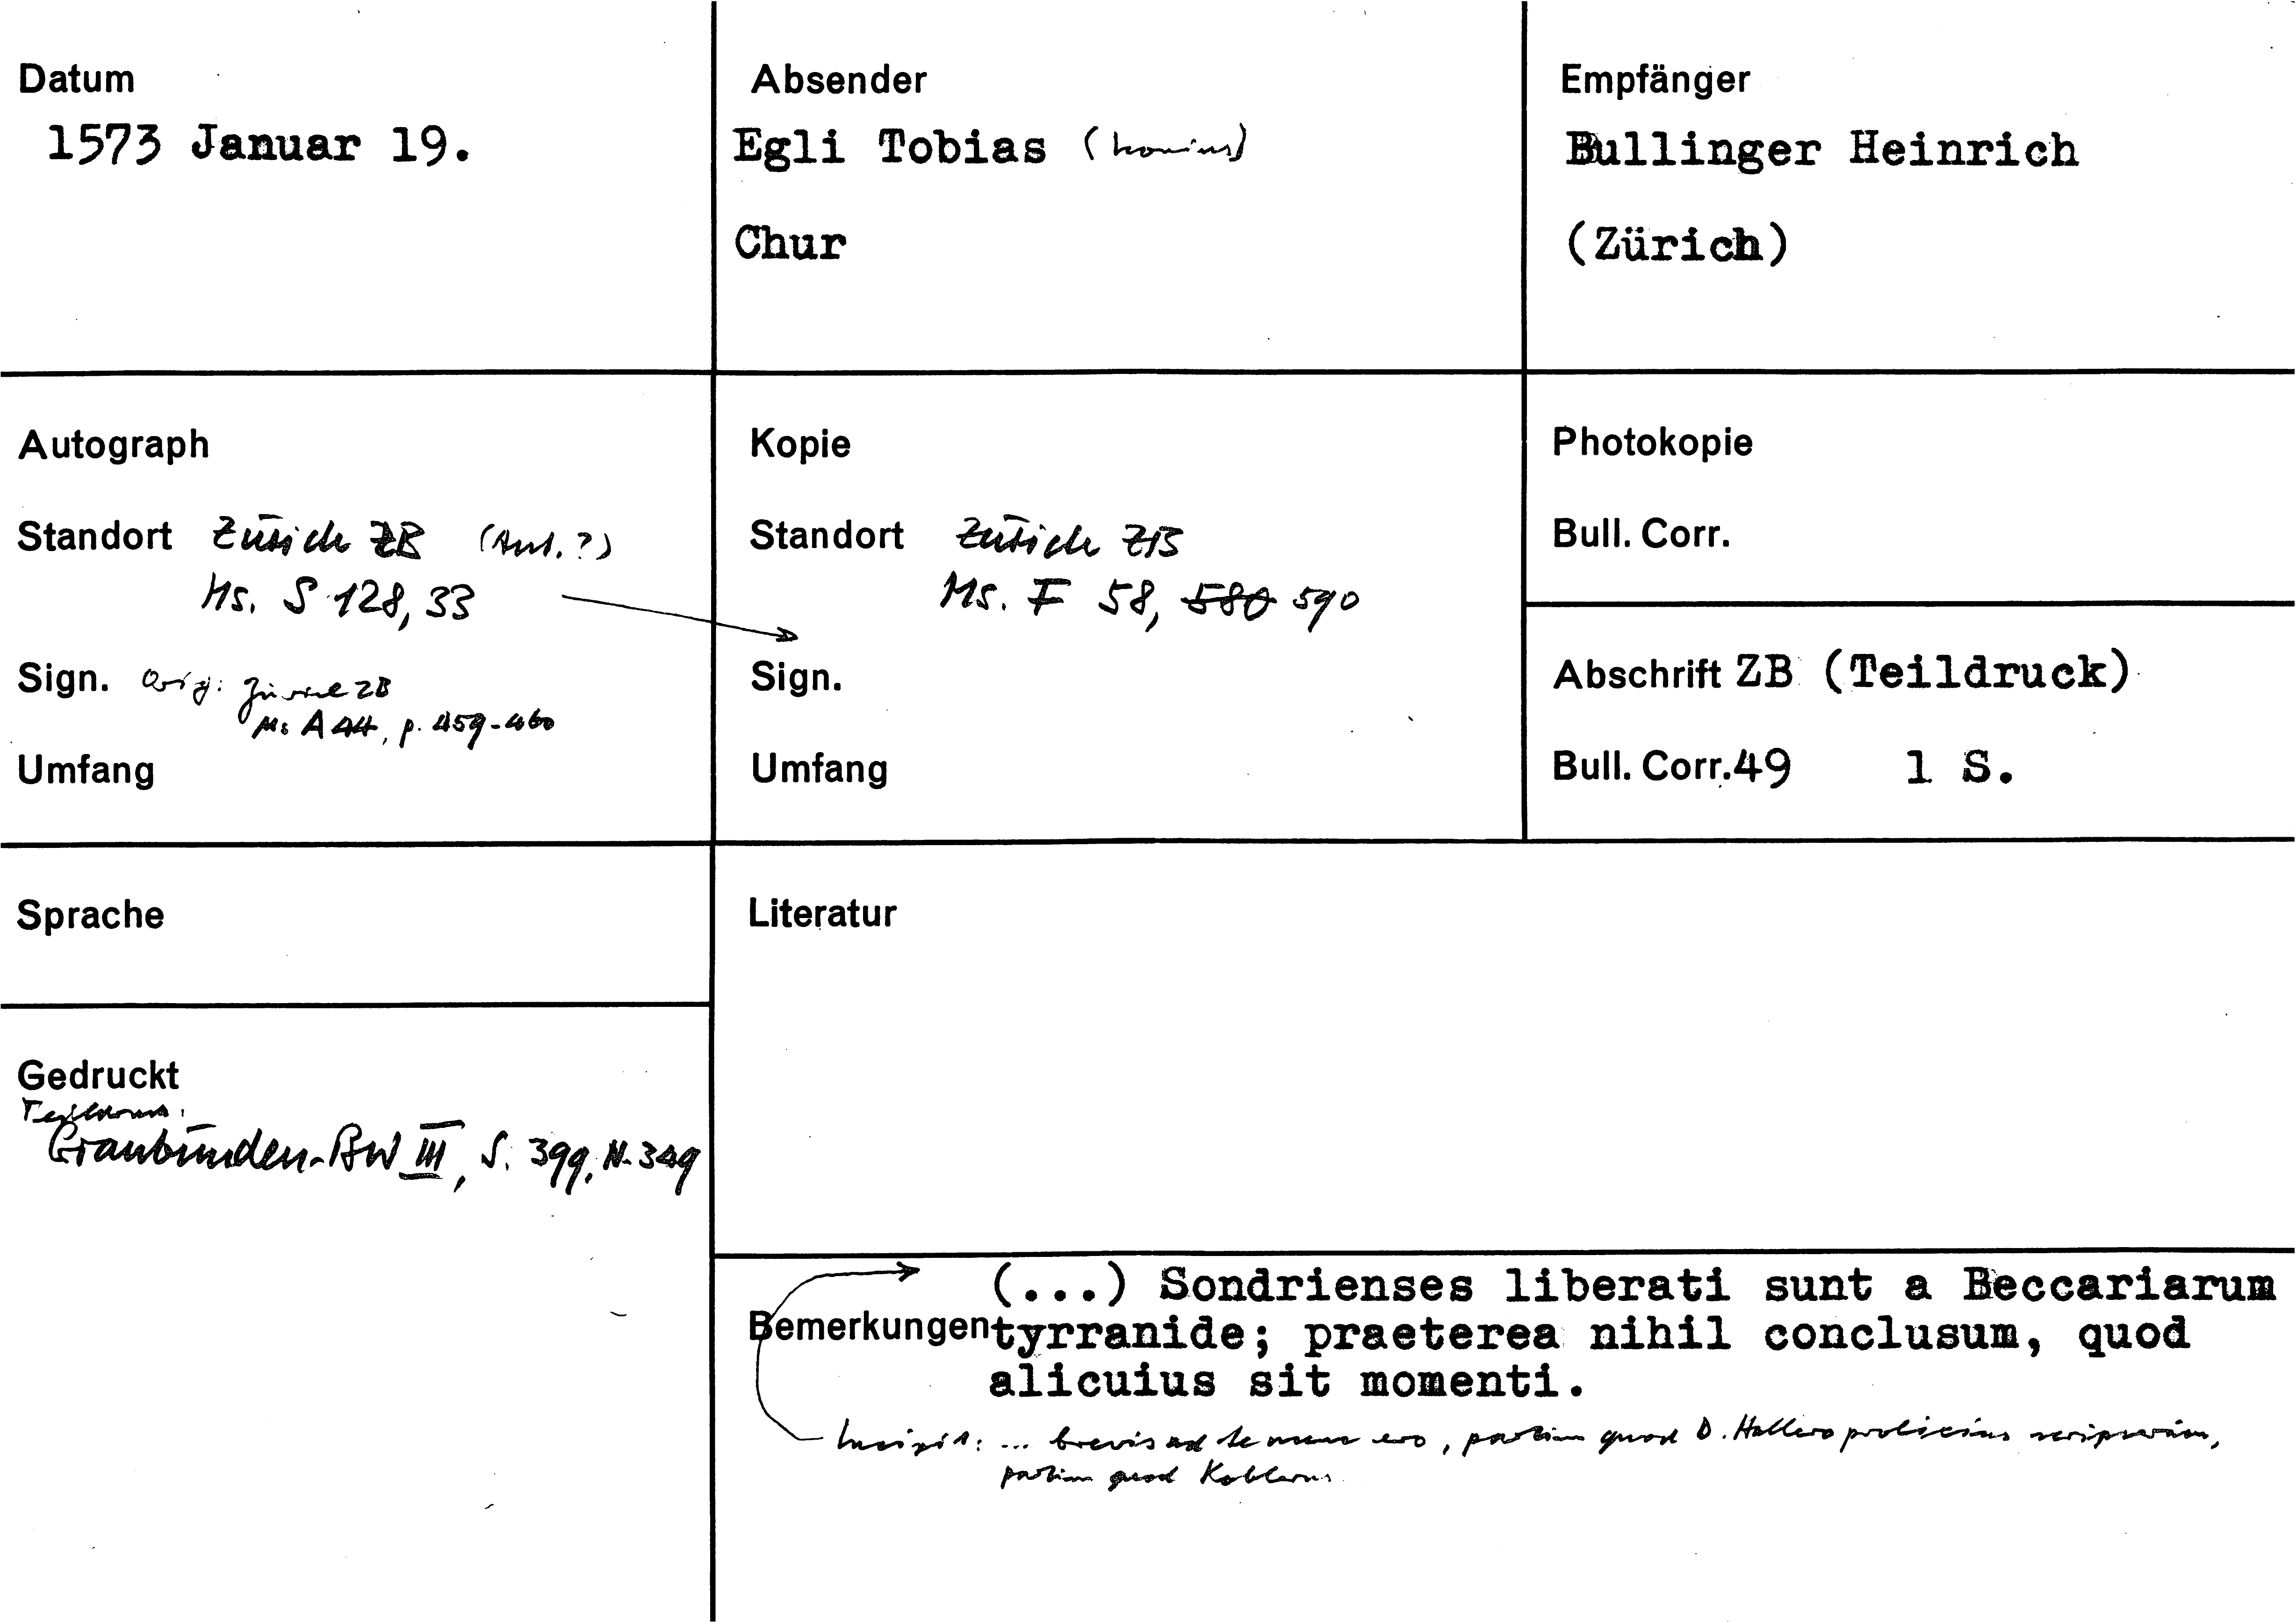 Datum
1573 Januar 19.
Absender
Egli Tobias (Iconius)
Chur
Empfänger
Bullinger Heinrich
(Zürich)
Autograph
Standort Zürich ZB (Aut.?)
Ms. S 128, 33
Sign. Orig: Zürich ZB
Ms A 44, p. 459-460
Umfang
Kopie
Standort Zürich ZB
Ms. F 58, 580 590
Sign.
Umfang
Photokopie
Bull. Corr.
Abschrift ZB (Teildruck)
Bull. Corr. 49 1 S.
Sprache
Gedruckt
Teildruck:
Graubünden-BW III, S. 399, N. 349
Literatur
Bemerkungen
(...) Sondrienses liberati sunt a Beccariarum
tyrranide; praeterea nihil conclusum, quod
alicuius sit momenti.
Incipit: ... brevis ad te nunc ero, partim quod D. Hallero prolixius scripserim,
partim quod Koblerus